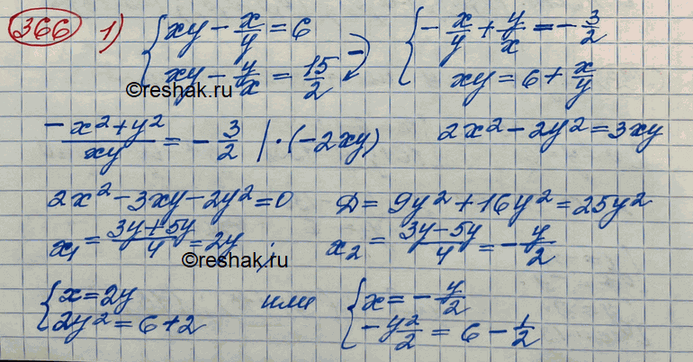 366 1) { xy - x/y = 6      { -x/y + y/x = -3/2
{ xy - y/x = 15/2      { xy = 6 + x/y
©reshak.ru
(-x² + y²)/xy = -3/2 | ·(-2xy)      2x² - 2y² = 3xy
2x² - 3xy - 2y² = 0      D = 9y² + 16y² = 25y²
x₁ = (3y + 5y)/4 = 2y ;      x₂ = (3y - 5y)/4 = -y/2
©reshak.ru
{ x = 2y      или      { x = -y/2
{ 2y² = 6 + 2      { -y²/2 = 6 - 1/2